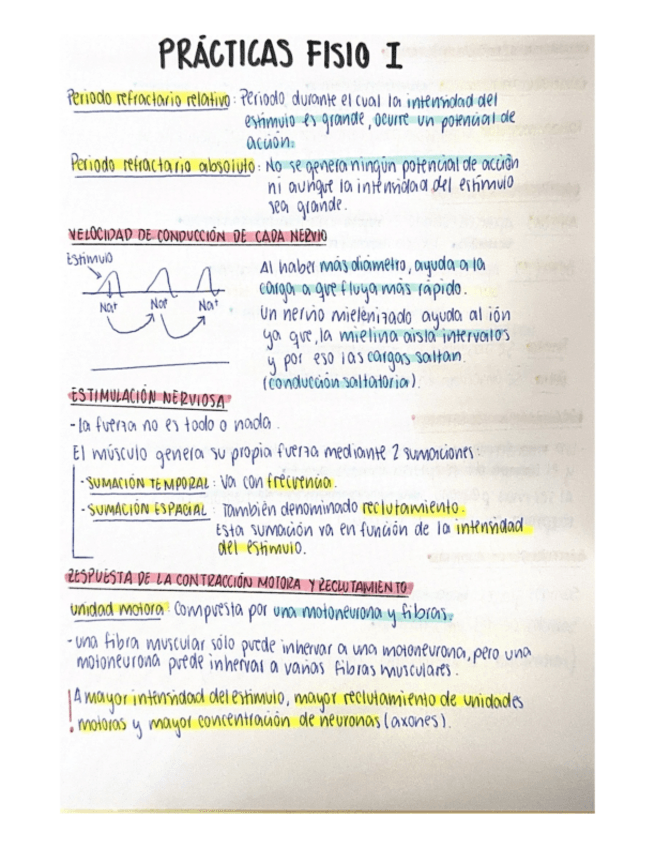 PRÁCTICAS FISIO I
Periodo refractario relativo: Periodo durante el cual la intensidad del
estímulo es grande, ocurre un potencial de
acción.
Periodo refractario absoluto: No se genera ningún potencial de acción
ni aunque la intensidad del estímulo
sea grande.
VELOCIDAD DE CONDUCCIÓN DE CADA NERVIO
Estímulo
Na+ Na+ Na+
Al haber más diámetro, ayuda a la
carga a que fluya más rápido.
Un nervio mielenizado ayuda al ión
ya que, la mielina aisla intervalos
y por eso las cargas saltan.
(conducción saltatoria).
ESTIMULACIÓN NERVIOSA
-la fuerza no es todo o nada.
El músculo genera su propia fuerza mediante 2 sumaciones:
-SUMACIÓN TEMPORAL: Va con frecuencia.
-SUMACIÓN ESPACIAL: También denominado reclutamiento.
Esta sumación va en función de la intensidad
del estímulo.
RESPUESTA DE LA CONTRACCIÓN MOTORA Y RECLUTAMIENTO
unidad motora: Compuesta por una motoneurona y fibras.
-una fibra muscular sólo puede inhervar a una motoneurona, pero una
motoneurona puede inhervar a varias fibras musculares.
! A mayor intensidad del estímulo, mayor reclutamiento de unidades
motoras y mayor concentración de neuronas (axones).